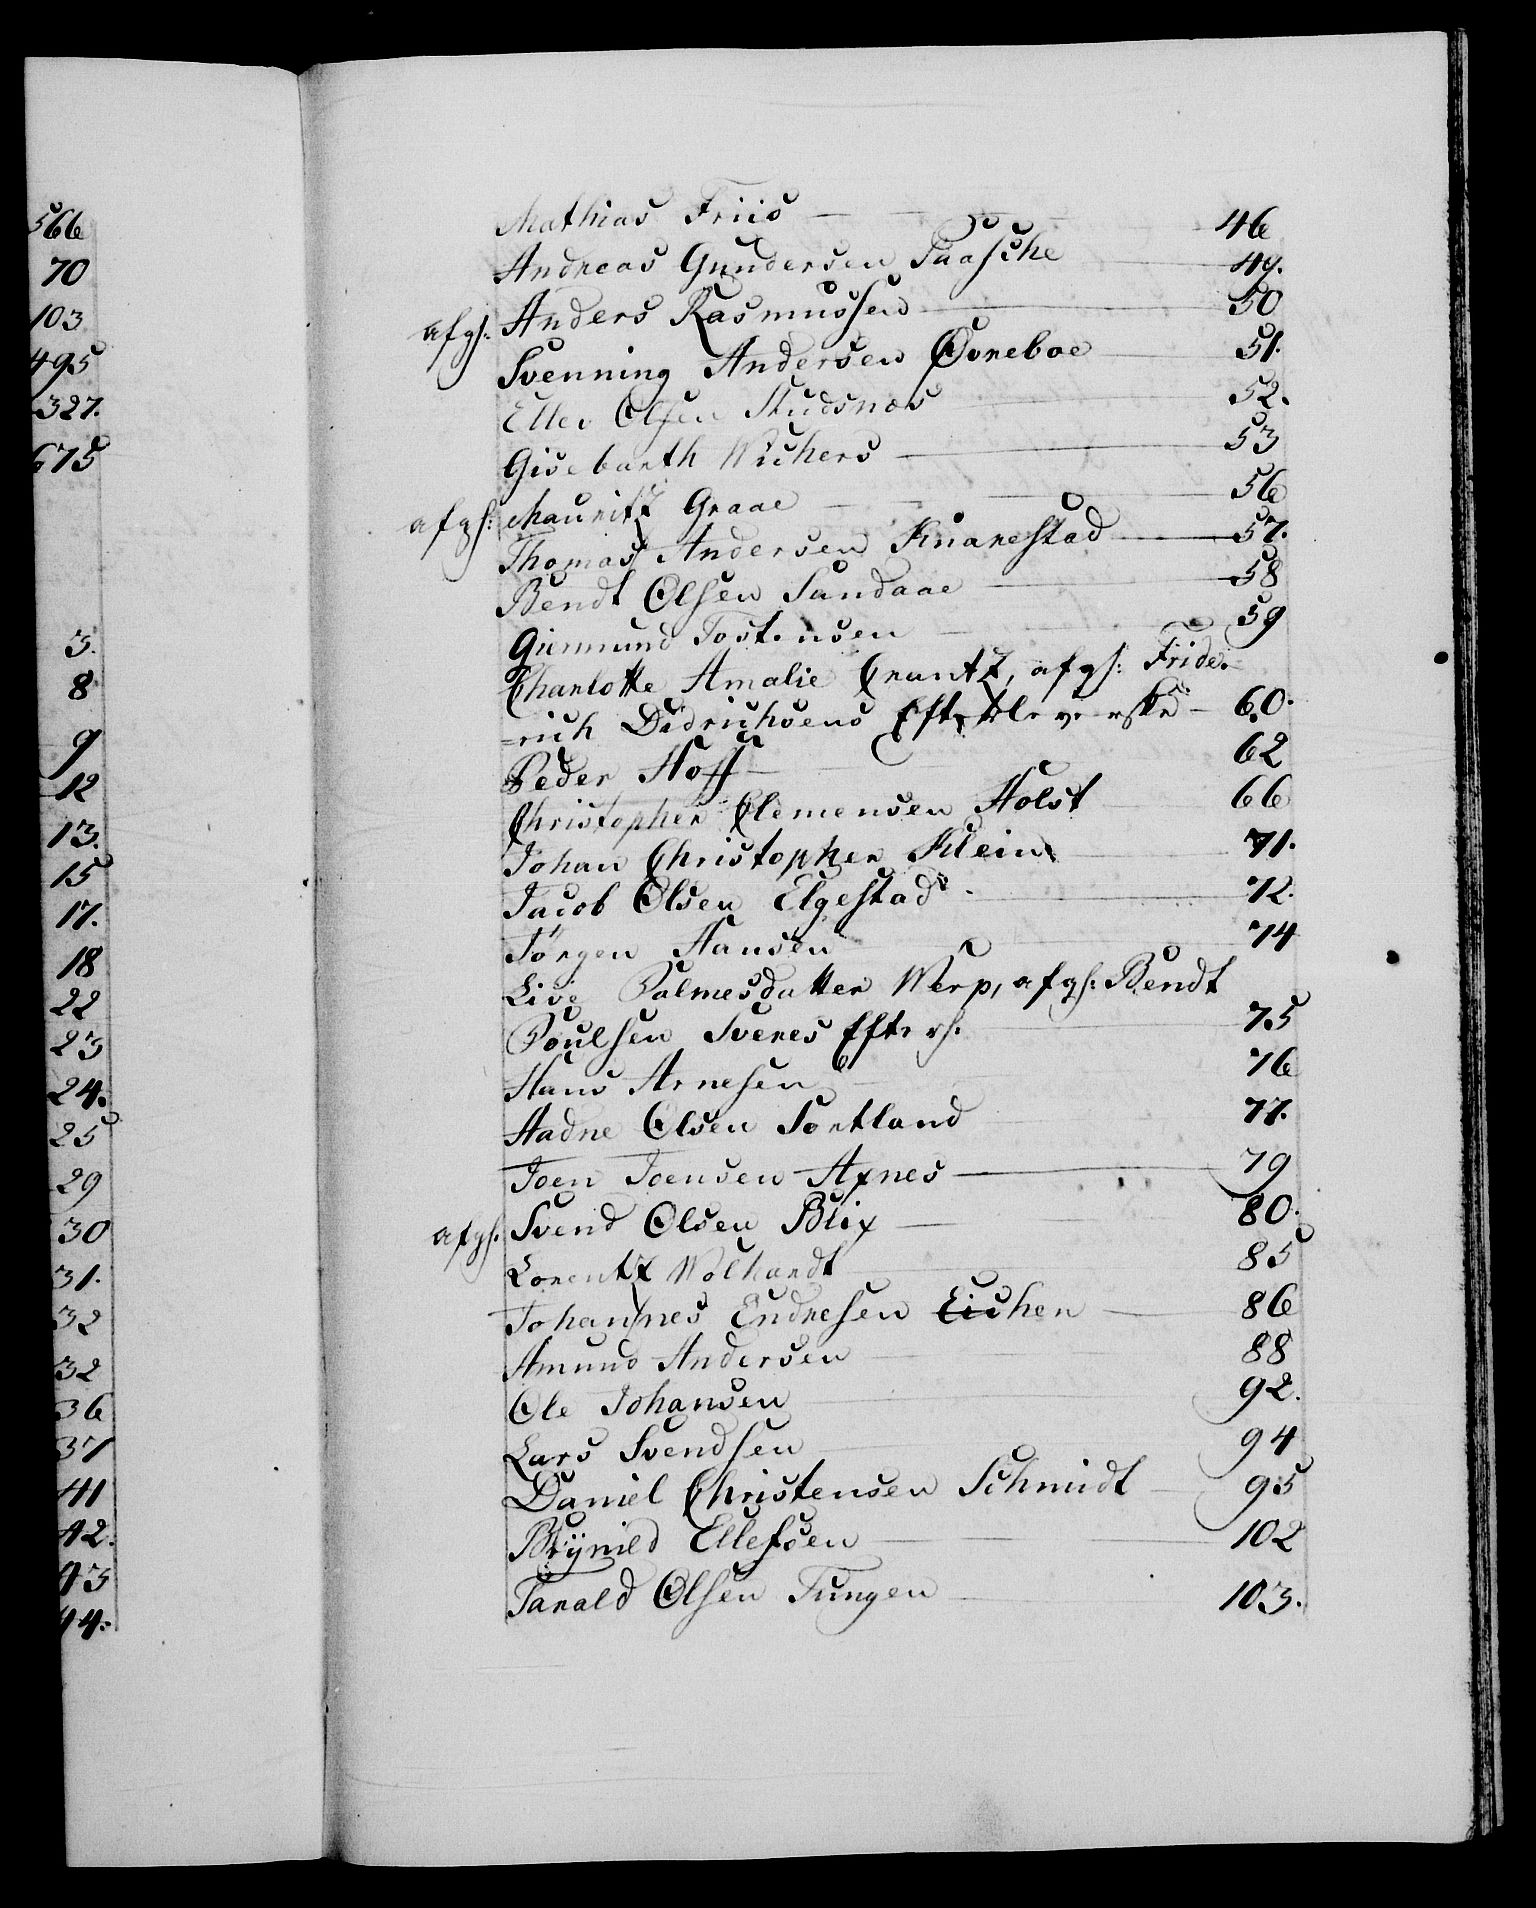 566
70
103
495
327.
675
3.
8
9
12
13.
15
17.
18
22
23
24.
25
29
30
31.
32
32
36
37
41
42.
43
44.
Mathias Friis 46
Andreas Gundersen Paasche 49.
afgs: Anders Rasmussen 50
Svenning Andersen Øvreboe 51.
Ellev Olsen Studsnæs 52.
Gisebarth Wichers 53
afgs: Mauritz Graae 56
Thomas Andersen Knarestad 57.
Bendt Olsen Sandaae 58
Giermund Tostensen 59
Charlotte Amalie Crantz, afgs: Fride-
=rich Didrichsens Efterleverske 60.
Peder Hoff 62
Christopher Clemensen Holst 66
Johan Christopher Klein 71.
Jacob Olsen Elgestad 72.
Jørgen Hansen 74
Live Palmesdatter Werp, afgs: Bendt
Poulsen Sveres Efters. 75
Hans Arnesen 76
Aadne Olsen Sortland 77.
Joen Joensen Axnes 79
afgs. Svend Olsen Blix 80.
Lorentz Wolhardt 85
Johannes Endresen Eichen 86
Amund Andersen 88
Ole Johansen 92.
Lars Svendsen 94
Daniel Christensen Schmidt 95
Brÿnild Ellefsen 102
Tarald Olsen Tungen 103.